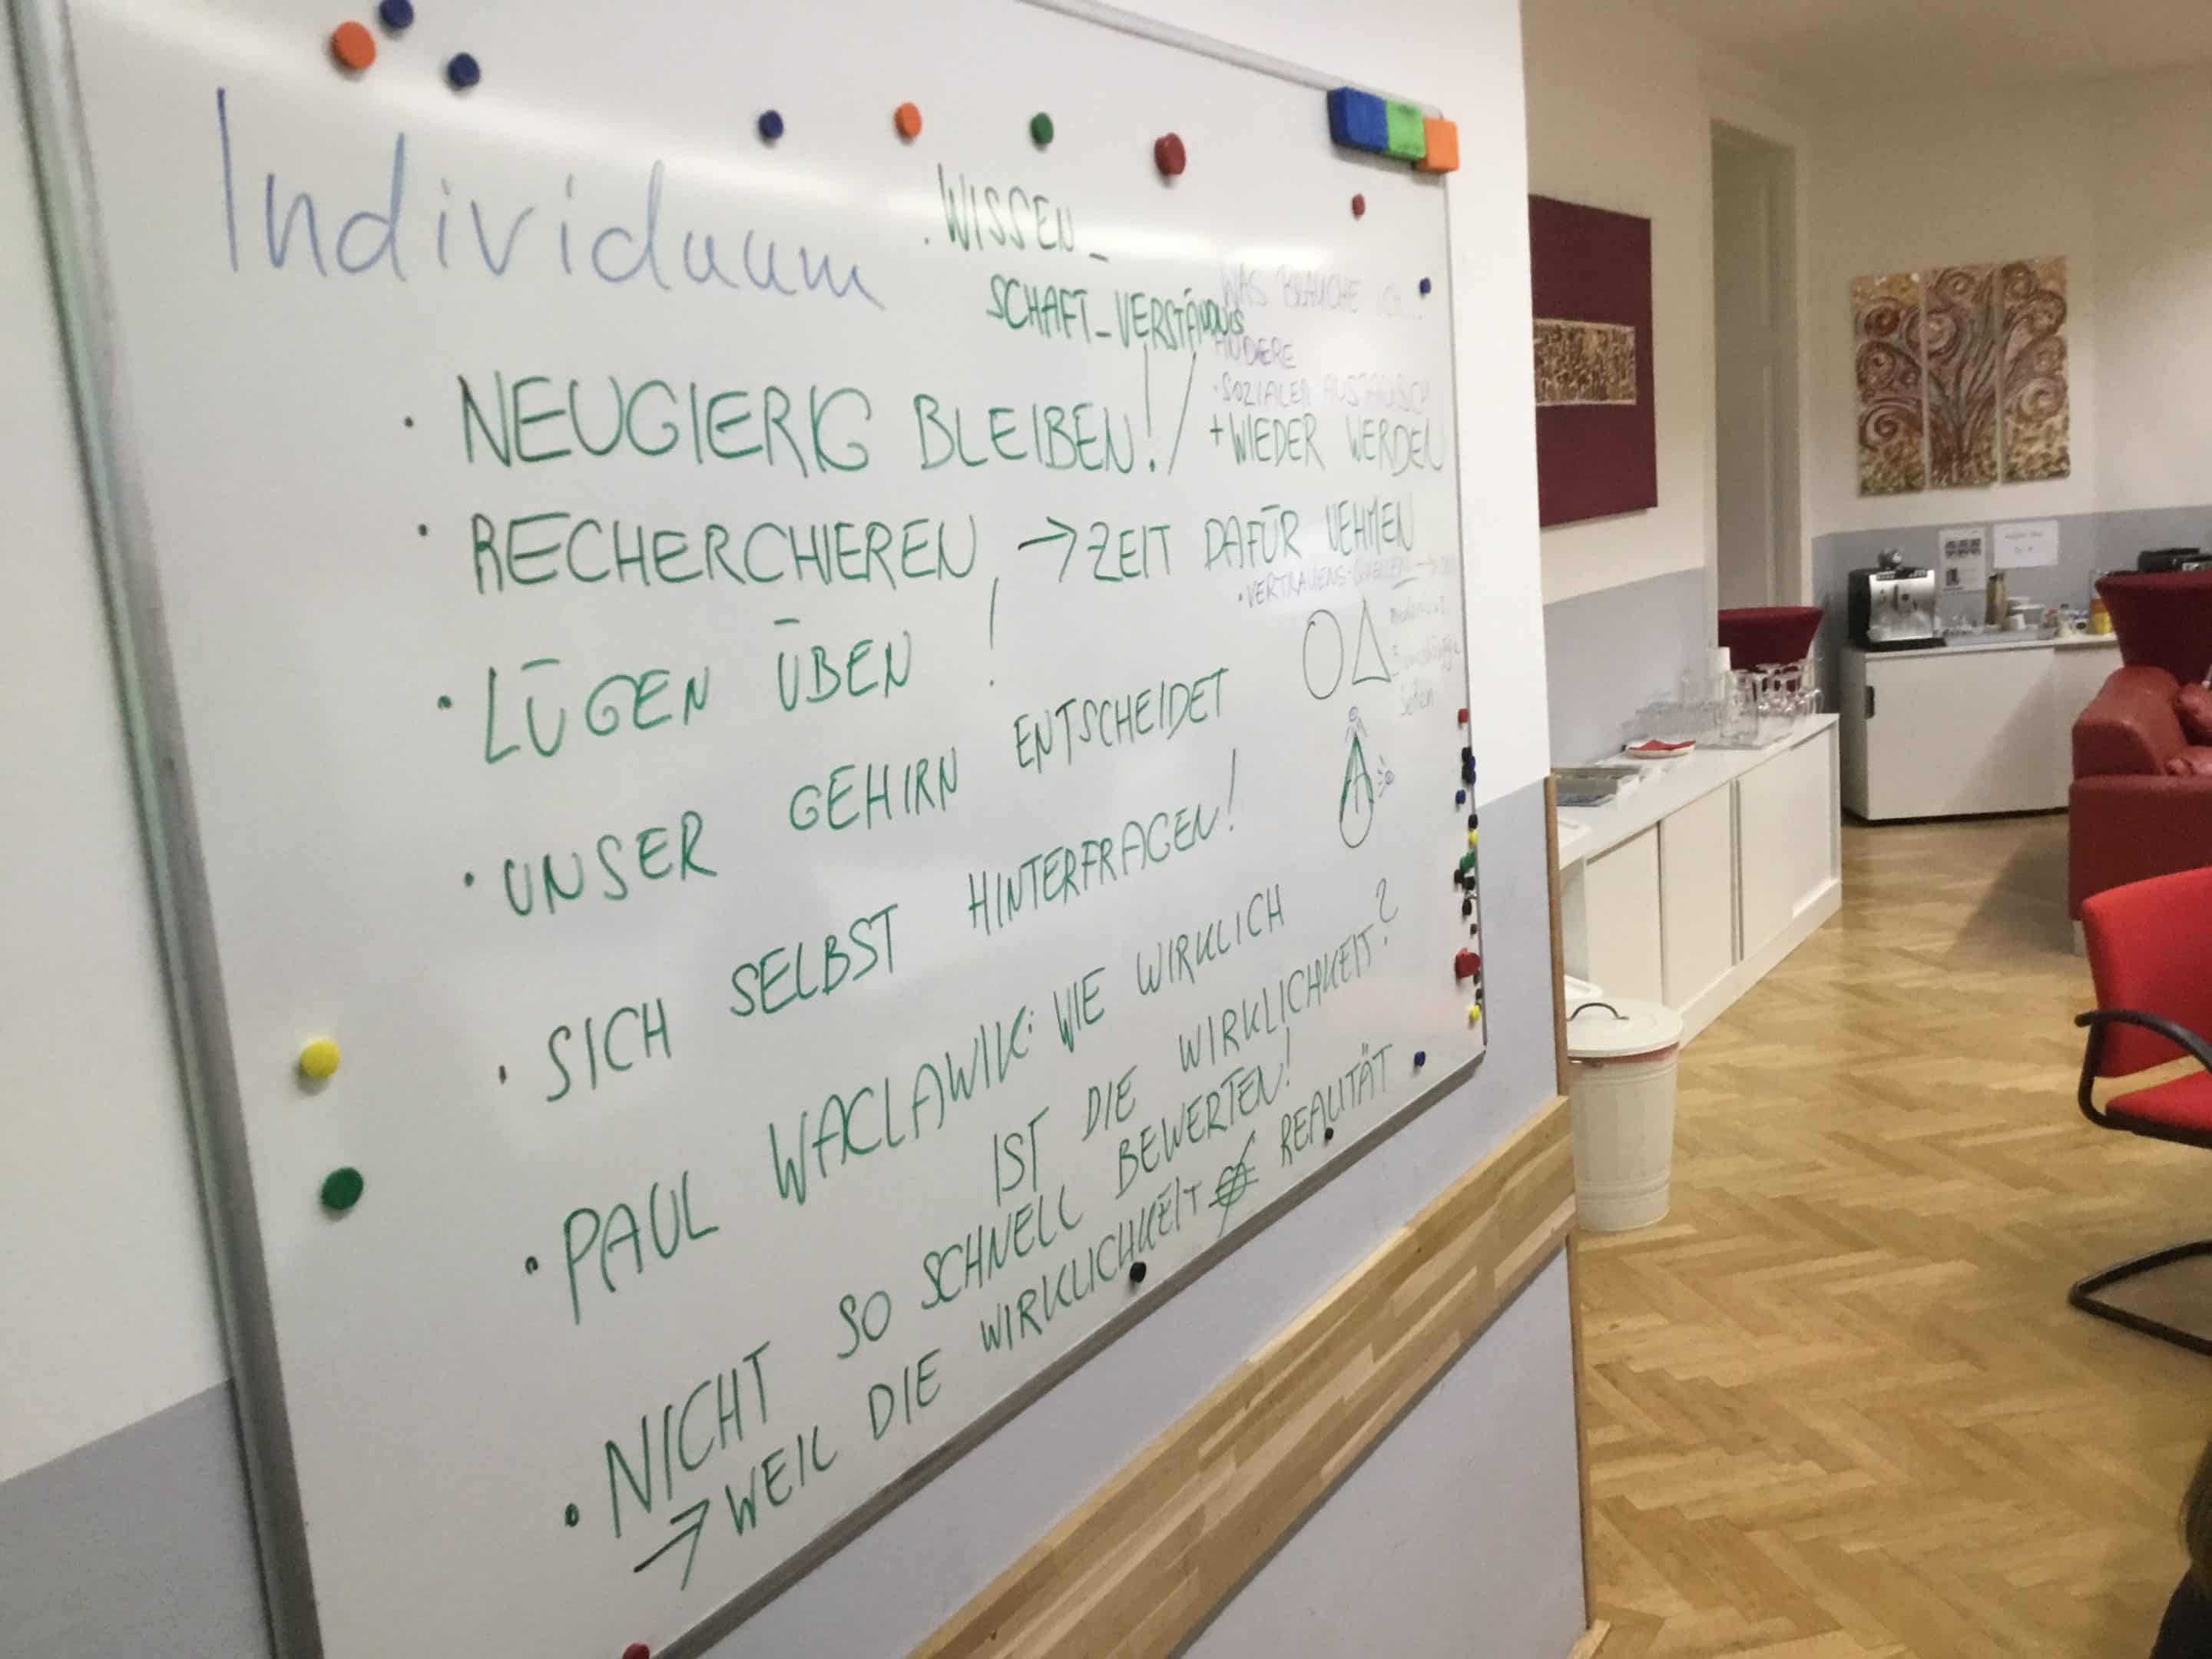 Individuum
. WISSEN_
SCHAFT_VERSTÄNDNIS
WAS BRAUCHE ICH...
ANDERE
· SOZIALER AUSTAUSCH
· NEUGIERIG BLEIBEN! / + WIEDER WERDEN
· RECHERCHIEREN, → ZEIT DAFÜR NEHMEN
· VERTRAUENS-QUELLEN →
· LÜGEN ÜBEN !
· UNSER GEHIRN ENTSCHEIDET
· SICH SELBST HINTERFRAGEN!
· PAUL WACLAWIK: WIE WIRKLICH
IST DIE WIRKLICHKEIT?
· NICHT SO SCHNELL BEWERTEN!
→ WEIL DIE WIRKLICHKEIT ≠ REALITÄT